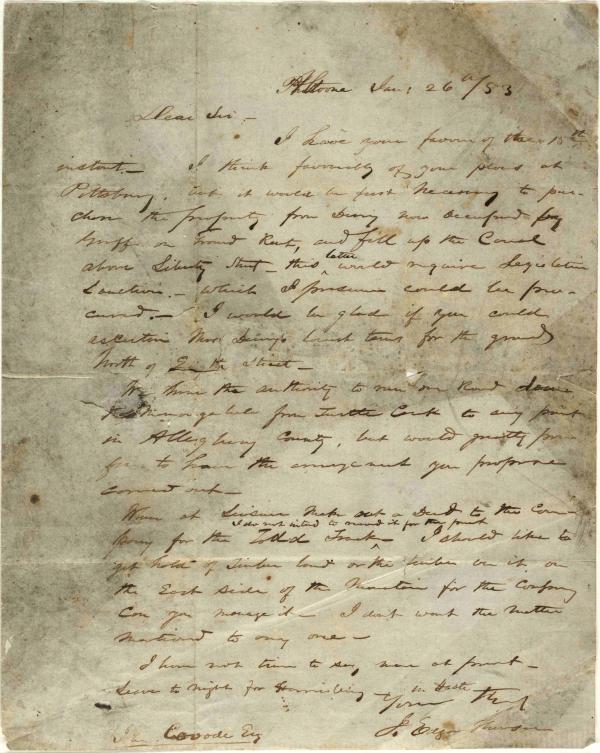 Altoona Jan: 26th/53
Dear Sir,-
I have your favour of the 18th
instant.- I think favorably of your plans at
Pittsburg, but it would be first necessary to pur-
chase the property from Denny now occupied by
on Ground Rent, and fill up the Canal
above Liberty Street - this latter would require Legislative
Sanction.- which I presume could be pro-
cured.- I would be glad if you could
ascertain Mrs Denny's lowest terms for the ground
North of Street-
We have the authority to run our Road down
the Monongahela from Turtle Creek to any point
in Allegheny County, but would greatly pre-
fer to have the arrangement you propose
carried out-
When at Leisure Make out a Deed to the Com-
pany for the Todd Tract. I do not intend to record it for the present I should like to
get hold of Timber land or the timber on it, on
the East side of the Mountain for the Company
Can you manage it- I don't want the matter
mentioned to any one-
I have not time to say more at present-
Leave to night for Harrisburg in Haste
Yours Truly
J. Edgar Thomson
Jno Covode Esq